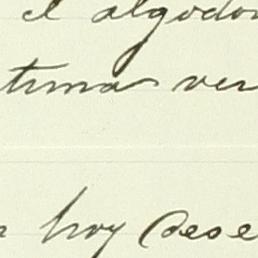 el algodon
tima ver
hoy dese